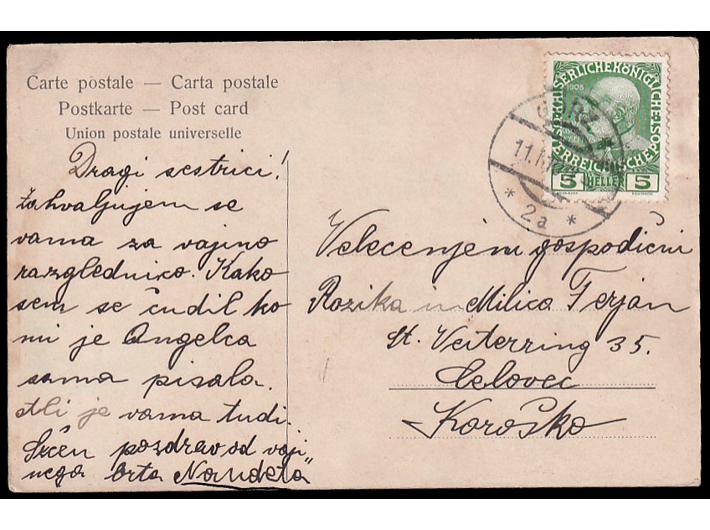 Carte postale — Carta postale
Postkarte — Post card
Union postale universelle
Dragi sestrici!
Zahvaljujem se
vama za vajino
razglednico. Kako
sem se čudil ko
mi je Angelca
sama pisala.
Ali je vama tudi.
Srčen pozdrav od vaji„
nega brta Nandeta
KAISERLICHEKÖNIGLICHE
1908
ÖSTERREICHISCHEPOST
5 HELLER 5
GÖRZ
11.1
* 2a *
Velecenjeni gospodični
Rozika in Milica Ferjan
St. Veiterring 35.
Celovec
Koroško